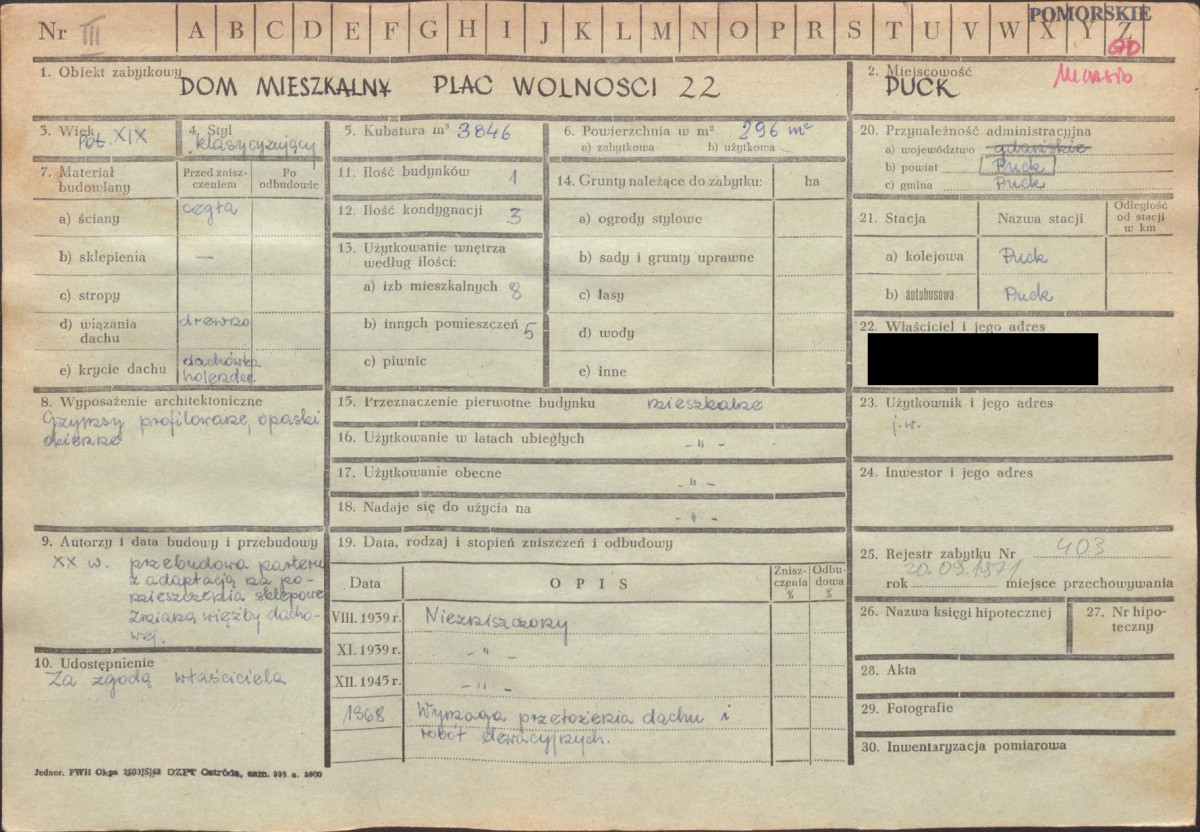 Nr III A B C D E F G H I J K L M N O P R S T U V W X Y Z
POMORSKIE
1. Obiekt zabytkowy DOM MIESZKALNY PLAC WOLNOSCI 22
2. Miejscowość
PUCK
Miasto
3. Wiek
poł. XIX
4. Styl
klasycyzujący
5. Kubatura m³ 3846
6. Powierzchnia w m² 296 m²
a) zabytkowa b) użytkowa
7. Materiał budowlany
Przed zniszczeniem
Po odbudowie
a) ściany cegła
b) sklepienia —
c) stropy
d) wiązania dachu drewno
e) krycie dachu dachówka holender.
8. Wyposażenie architektoniczne
Gzymsy profilowane, opaski
okienne
9. Autorzy i data budowy i przebudowy
XX w. przebudowa parteru
z adaptacją na po-
mieszczenia sklepowe
Zmiana więźby dacho-
wej.
10. Udostępnienie
Za zgodą właściciela
11. Ilość budynków 1
12. Ilość kondygnacji 3
13. Użytkowanie wnętrza
według ilości:
a) izb mieszkalnych 8
b) innych pomieszczeń 5
c) piwnic
14. Grunty należące do zabytku: ha
a) ogrody stylowe
b) sady i grunty uprawne
c) lasy
d) wody
e) inne
15. Przeznaczenie pierwotne budynku mieszkalne
16. Użytkowanie w latach ubiegłych - " -
17. Użytkowanie obecne - " -
18. Nadaje się do użycia na - " -
19. Data, rodzaj i stopień zniszczeń i odbudowy
Data OPIS Zniszczenia % Odbudowa %
VIII. 1939 r. Niezniszczony
XI. 1939 r. - " -
XII. 1945 r. - " -
1968 Wymaga przełożenia dachu i
robót elewacyjnych.
20. Przynależność administracyjna
a) województwo gdańskie
b) powiat Puck
c) gmina Puck
21. Stacja Nazwa stacji Odległość od stacji w km
a) kolejowa Puck
b) autobusowa Puck
22. Właściciel i jego adres
23. Użytkownik i jego adres
j.w.
24. Inwestor i jego adres
25. Rejestr zabytku Nr 403
rok 20.09.1971 miejsce przechowywania
26. Nazwa księgi hipotecznej
27. Nr hipoteczny
28. Akta
29. Fotografie
30. Inwentaryzacja pomiarowa